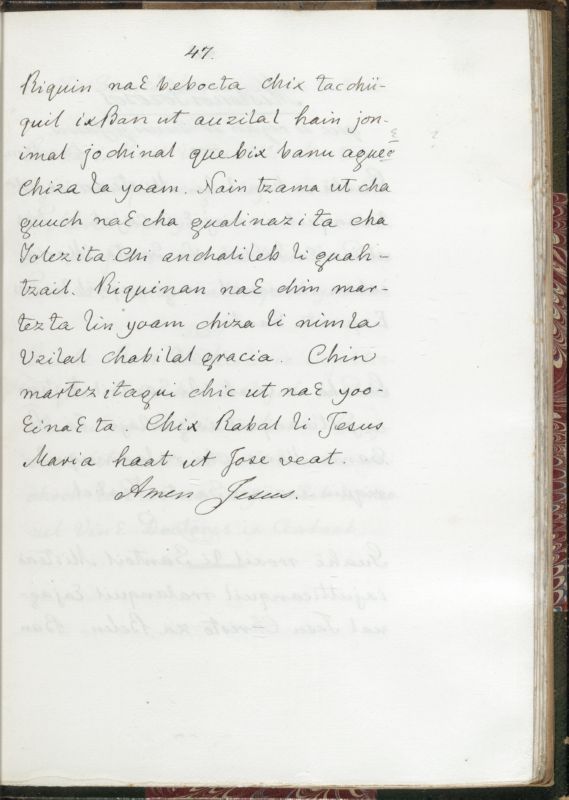 47.
Riquin naƐ bebocta chix tacchii-
quil ixBan ut auzilal hain jon-
imal jochinal quebix banu aqueo
Chiza la yoam. Nain tzama ut cha
quuch naƐ cha qualinaz ita cha
Tolez ita Chi anchalileb li quali-
tzail. Riquinan naƐ chin mar-
tez ta lin yoam chiza li nimla
Uzilal chabilal gracia. Chin
martez itaqui chic ut naƐ yoo-
Ɛi naƐ ta. Chix Rabal li Jesus
Maria haat ut Jose veat.
Amen Jesus.